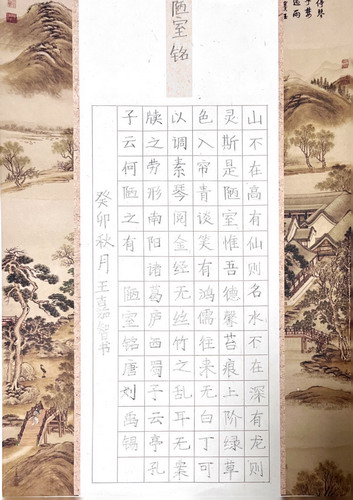 陋室铭
山不在高有仙则名水不在深有龙则
灵斯是陋室惟吾德馨苔痕上阶绿草
色入帘青谈笑有鸿儒往来无白丁可
以调素琴阅金经无丝竹之乱耳无案
牍之劳形南阳诸葛庐西蜀子云亭孔
子云何陋之有 陋室铭唐刘禹锡
癸卯秋月王嘉智书